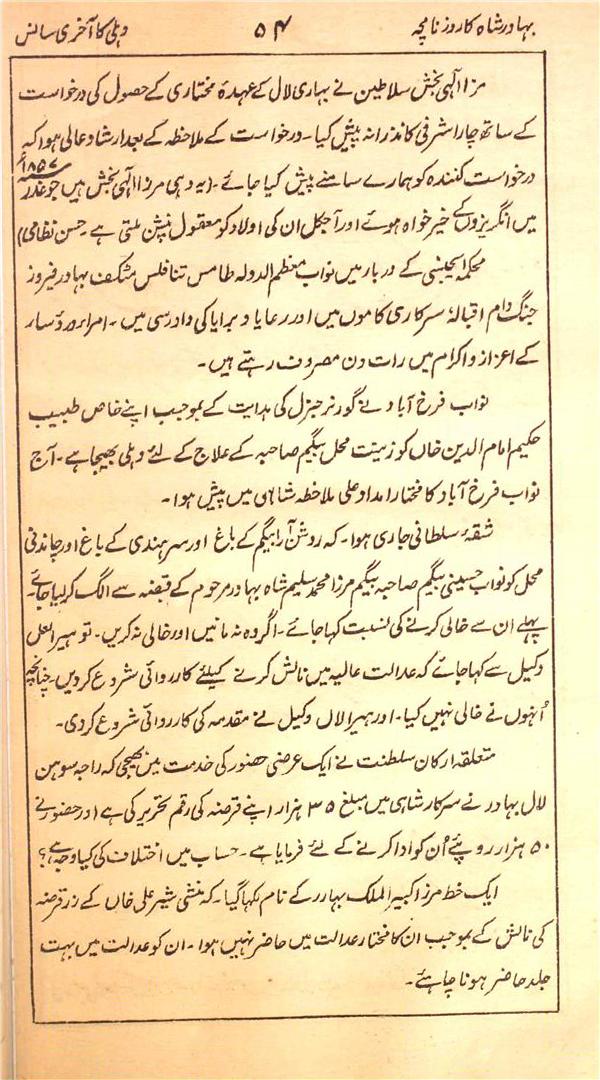 بہادر شاہ کا روزنامچہ ۵۴ دہلی کا آخری سانس
مرزا الٰہی بخش سلاطین نے بہاری لال کے عہدۂ مختاری کے حصول کی درخواست
کے ساتھ چار اشرفی کا نذرانہ پیش کیا۔ درخواست کے ملاحظہ کے بعد ارشاد عالی ہوا کہ
درخواست کنندہ کو ہمارے سامنے پیش کیا جائے۔ (یہ وہی مرزا الٰہی بخش ہیں جو غدر ۱۸۵۷ء
میں انگریزوں کے خیر خواہ ہوئے اور آجکل ان کی اولاد کو معقول پنشن ملتی ہے۔ حسن نظامی)
محکمہ ایجنسی کے دربار میں نواب معظم الدولہ طامس تنافلس مٹکف بہادر فیروز
جنگ دام اقبالہٗ سرکاری کاموں میں اور رعایا و برایا کی دادرسی میں۔ امراء و رؤسار
کے اعزاز و اکرام میں رات دن مصروف رہتے ہیں۔
نواب فرخ آباد نے گورنر جنرل کی ہدایت کے بموجب اپنے خاص طبیب
حکیم امام الدین خاں کو زینت محل بیگم صاحبہ کے علاج کے لئے دہلی بھیجا ہے۔ آج
نواب فرخ آباد کا مختار امداد علی ملاحظہ شاہی میں پیش ہوا۔
شقۂ سلطانی جاری ہوا۔ کہ روشن آرا بیگم کے باغ اور سرہندی کے باغ اور چاندنی
محل کو نواب حسینی بیگم صاحبہ بیگم مرزا محمد سلیم شاہ بہادر مرحوم کے قبضہ سے الگ کر لیا جائے۔
پہلے ان سے خالی کرنے کی نسبت کہا جائے۔ اگر وہ نہ مانیں اور خالی نہ کریں۔ تو ہیرا لعل
وکیل سے کہا جائے کہ عدالت عالیہ میں نالش کرنے کیلئے کارروائی شروع کر دیں۔ چنانچہ
اُنہوں نے خالی نہیں کیا۔ اور ہیرا لال وکیل نے مقدمہ کی کارروائی شروع کر دی۔
متعلقہ ارکان سلطنت نے ایک عرضی حضور کی خدمت میں بھیجی کہ راجہ سوہن
لال بہادر نے سرکار شاہی میں مبلغ ۳۵ ہزار اپنے قرضہ کی رقم تحریر کی ہے اور حضور نے
۵۰ ہزار روپئے اُن کو ادا کرنے کے لئے فرمایا ہے۔ حساب میں اختلاف کی کیا وجہ ہے؟
ایک خط مرزا کبیر الملک بہادر کے نام لکھا گیا۔ کہ منشی شیر علی خاں کے زر قرضہ
کی نالش کے بموجب ان کا مختار عدالت میں حاضر نہیں ہوا۔ ان کو عدالت میں بہت
جلد حاضر ہونا چاہئے۔